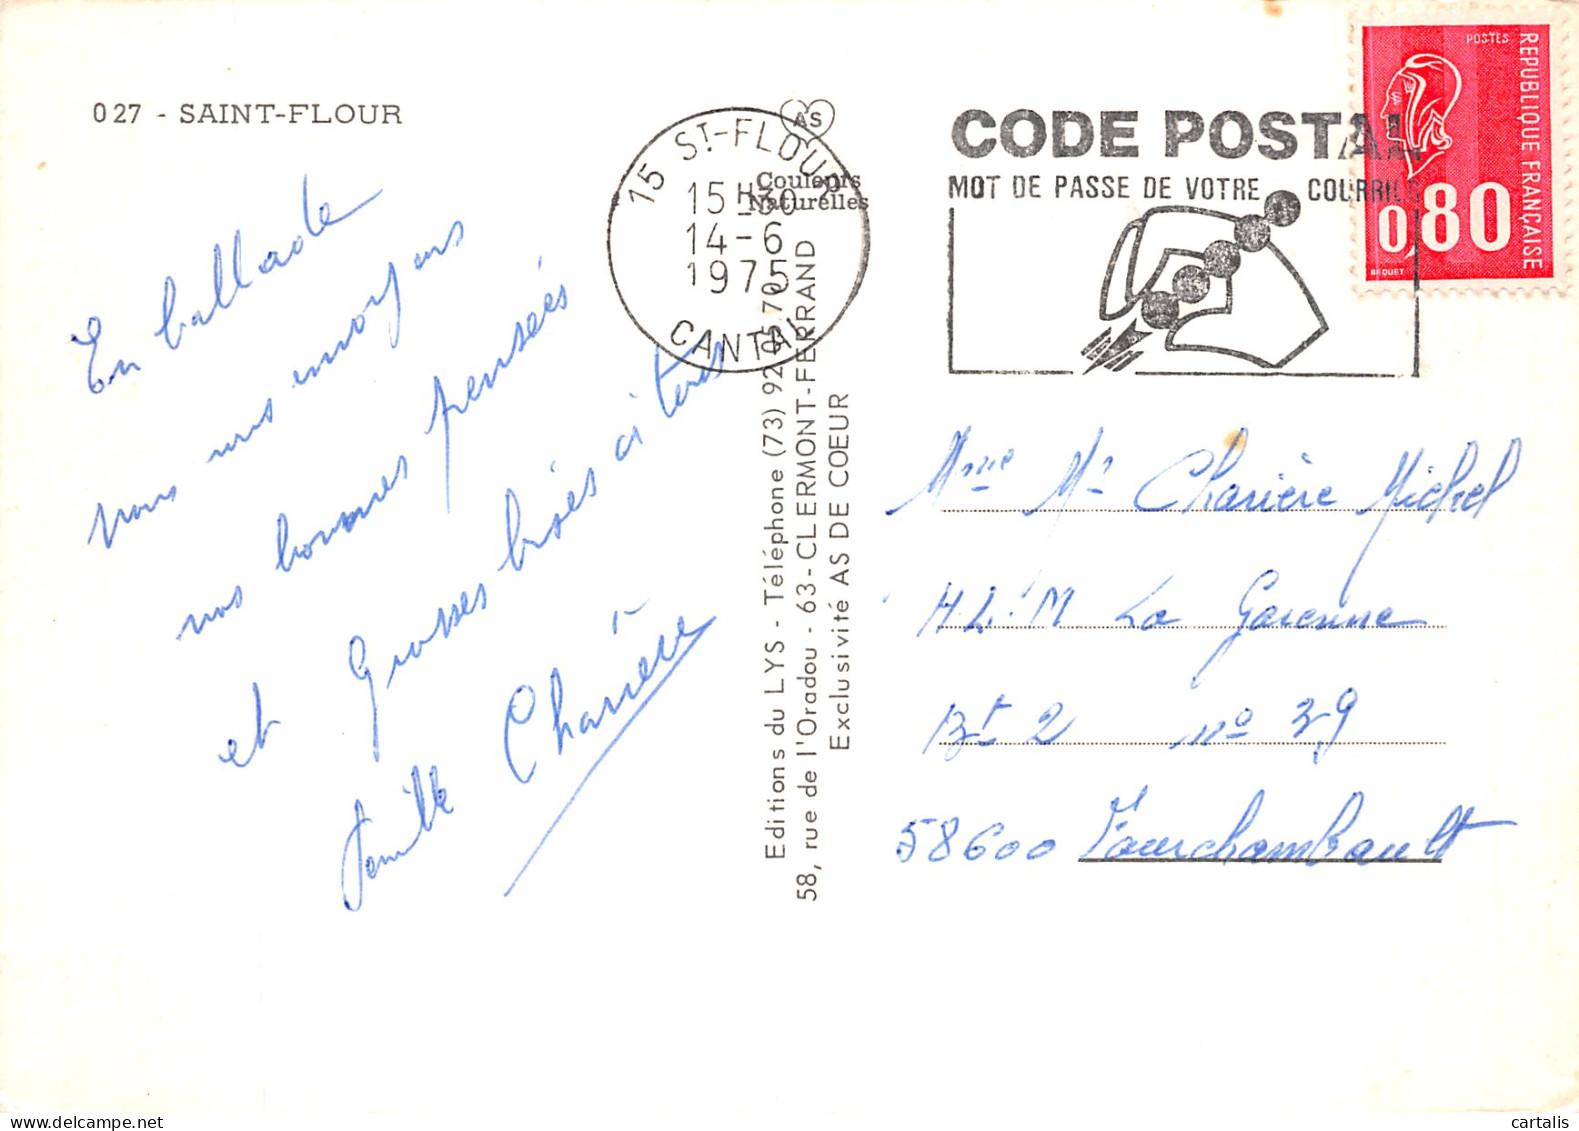 027 - SAINT-FLOUR
En ballade
nous vous envoyons
nos bonnes pensées
et Grosses bises à tous
famille Charrière
AS
Couleurs
Naturelles
15 ST-FLOUR
15H30
14-6
1975
CANTAL
Editions du LYS - Téléphone (73) 92.05.70
58, rue de l'Oradou - 63 - CLERMONT-FERRAND
Exclusivité AS DE COEUR
CODE POSTAL
MOT DE PASSE DE VOTRE COURRIER
POSTES
REPUBLIQUE FRANÇAISE
0,80
BEQUET
Mme Mr Charière Michel
H.L.M La Garenne
Bt 2 no 39
58600 Fourchambault
cartalis